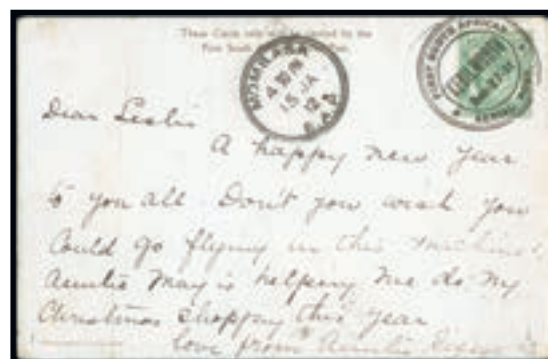 These Cards only will be carried by the
First South African Aerial Post.
MOMBASA
4 30 PM
15 JA
12
FIRST SOUTH AFRICAN
AERIAL POST
Dear Leslie
A happy new year
to you all Don't you wish you
could go flying in this machine
Auntie May is helping me do my
Christmas shopping this year
love from Auntie